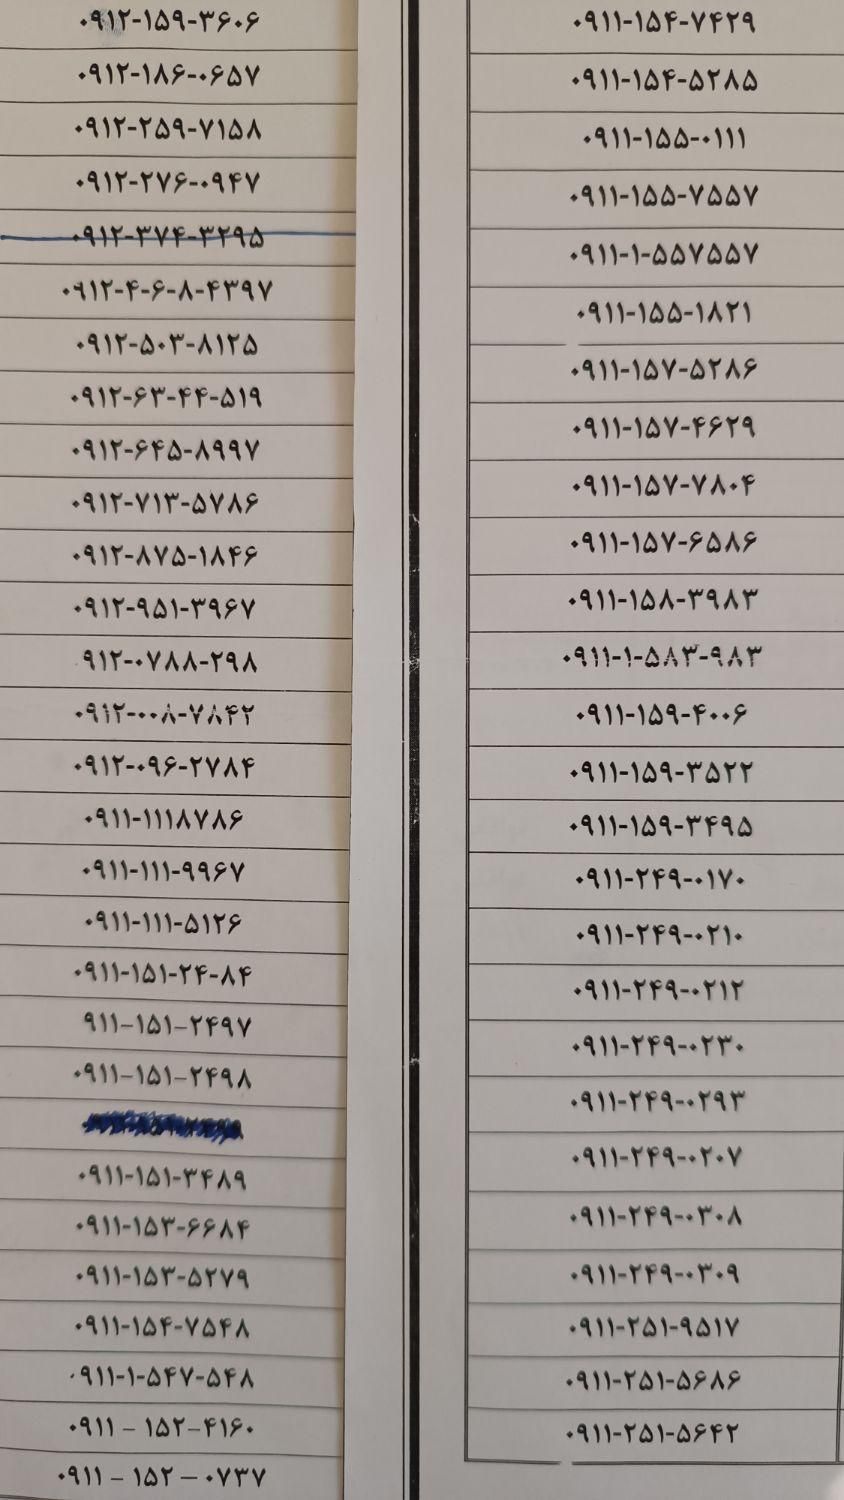 ۰۹۱۲-۱۵۹-۳۶۰۶
۰۹۱۲-۱۸۶-۰۶۵۷
۰۹۱۲-۲۵۹-۷۱۵۸
۰۹۱۲-۲۷۶-۰۹۴۷
۰۹۱۲-۳۷۴-۳۲۹۵
۰۹۱۲-۴-۶-۸-۴۳۹۷
۰۹۱۲-۵۰۳-۸۱۲۵
۰۹۱۲-۶۳-۴۴-۵۱۹
۰۹۱۲-۶۴۵-۸۹۹۷
۰۹۱۲-۷۱۳-۵۷۸۶
۰۹۱۲-۸۷۵-۱۸۴۶
۰۹۱۲-۹۵۱-۳۹۶۷
۹۱۲-۰۷۸۸-۲۹۸
۰۹۱۲-۰۰۸-۷۸۴۲
۰۹۱۲-۰۹۶-۲۷۸۴
۰۹۱۱-۱۱۱۸۷۸۶
۰۹۱۱-۱۱۱-۹۹۶۷
۰۹۱۱-۱۱۱-۵۱۲۶
۰۹۱۱-۱۵۱-۲۴-۸۴
۹۱۱-۱۵۱-۲۴۹۷
۰۹۱۱-۱۵۱-۲۴۹۸
۰۹۱۱-۱۵۱-۳۴۸۹
۰۹۱۱-۱۵۳-۶۶۸۴
۰۹۱۱-۱۵۳-۵۲۷۹
۰۹۱۱-۱۵۴-۷۵۴۸
۰۹۱۱-۱-۵۴۷-۵۴۸
۰۹۱۱ - ۱۵۲-۴۱۶۰
۰۹۱۱ - ۱۵۲ - ۰۷۳۷
۰۹۱۱-۱۵۴-۷۴۲۹
۰۹۱۱-۱۵۴-۵۲۸۵
۰۹۱۱-۱۵۵-۰۱۱۱
۰۹۱۱-۱۵۵-۷۵۵۷
۰۹۱۱-۱-۵۵۷۵۵۷
۰۹۱۱-۱۵۵-۱۸۲۱
۰۹۱۱-۱۵۷-۵۲۸۶
۰۹۱۱-۱۵۷-۴۶۲۹
۰۹۱۱-۱۵۷-۷۸۰۴
۰۹۱۱-۱۵۷-۶۵۸۶
۰۹۱۱-۱۵۸-۳۹۸۳
۰۹۱۱-۱-۵۸۳-۹۸۳
۰۹۱۱-۱۵۹-۴۰۰۶
۰۹۱۱-۱۵۹-۳۵۲۲
۰۹۱۱-۱۵۹-۳۴۹۵
۰۹۱۱-۲۴۹-۰۱۷۰
۰۹۱۱-۲۴۹-۰۲۱۰
۰۹۱۱-۲۴۹-۰۲۱۲
۰۹۱۱-۲۴۹-۰۲۳۰
۰۹۱۱-۲۴۹-۰۲۹۳
۰۹۱۱-۲۴۹-۰۲۰۷
۰۹۱۱-۲۴۹-۰۳۰۸
۰۹۱۱-۲۴۹-۰۳۰۹
۰۹۱۱-۲۵۱-۹۵۱۷
۰۹۱۱-۲۵۱-۵۶۸۶
۰۹۱۱-۲۵۱-۵۶۴۲